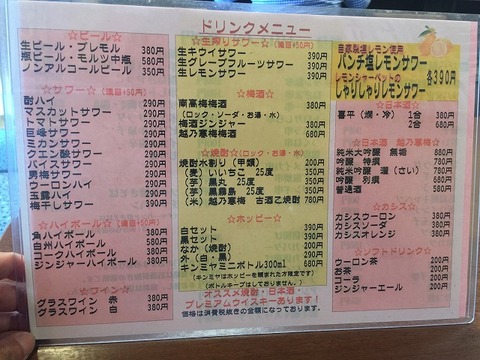 ドリンクメニュー
☆ビール☆
生ビール・プレモル 380円
瓶ビール・モルツ中瓶 580円
ノンアルコールビール 350円
☆サワー☆(濃目+50円)
酎ハイ 290円
マスカットサワー 290円
トマトサワー 290円
巨峰サワー 290円
ミカンサワー 290円
クエン酸サワー 290円
バイスサワー 290円
男梅サワー 290円
ウーロンハイ 290円
玉露ハイ 290円
梅干しサワー 390円
☆ハイボール☆(濃目+50円)
角ハイボール 380円
白州ハイボール 580円
コークハイボール 380円
ジンジャーハイボール 380円
☆ワイン☆
グラスワイン 赤 380円
グラスワイン 白 380円
☆生搾りサワー☆(濃目+50円)
生キウイサワー 390円
生グレープフルーツサワー 380円
生レモンサワー 380円
☆梅酒☆
南高梅梅酒 380円
(ロック・ソーダ・お湯・水)
梅酒ジンジャー 380円
越乃寒梅梅酒 680円
☆焼酎☆(ロック・お湯・水)
焼酎水割り(甲類) 200円
(麦)いいちこ 20度 350円
(芋)黒丸 25度 350円
(芋)黒霧島 25度 350円
(米)越乃寒梅 古酒乙焼酎 780円
☆ホッピー☆
白セット 390円
黒セット 390円
なか(焼酎) 200円
外(白・黒) 200円
キンミヤミニボトル300ml 680円
(キンミヤはホッピーを頼まれた方限定です)
(ボトルキープはしておりません。)
オススメ焼酎・日本酒・
プレミアムウイスキーあります!
価格は消費税抜きの金額になっております。
自家製塩レモン使用
パンチ塩レモンサワー
レモンシャーベットの 各390円
しゃりしゃりレモンサワー
☆日本酒☆
喜平(燗・冷) 1合 380円
2合 680円
☆日本酒 越乃寒梅☆
純米大吟醸 無垢 880円
吟醸 特撰 780円
純米吟醸 灑(さい) 780円
吟醸 別撰 680円
普通酒 580円
☆カシス☆
カシスウーロン 380円
カシスソーダ 380円
カシスオレンジ 380円
☆ソフトドリンク☆
ウーロン茶 200円
お茶 200円
コーラ 200円
ジンジャエール 200円